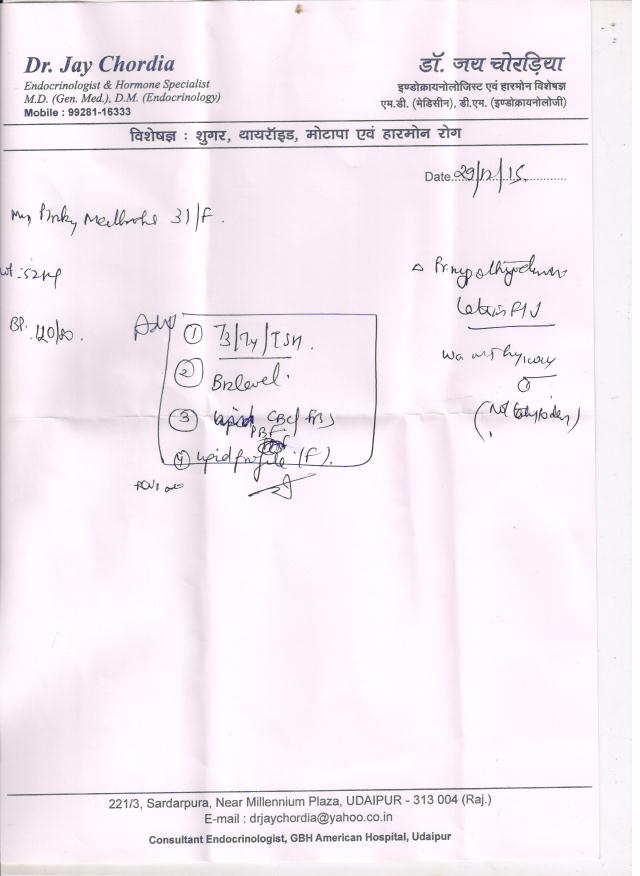 Dr. Jay Chordia
Endocrinologist & Hormone Specialist
M.D. (Gen. Med.), D.M. (Endocrinology)
Mobile : 99281-16333
डॉ. जय चोरड़िया
इण्डोक्रायनोलोजिस्ट एवं हारमोन विशेषज्ञ
एम.डी. (मेडिसीन), डी.एम. (इण्डोक्रायनोलोजी)
विशेषज्ञ : शुगर, थायरॉइड, मोटापा एवं हारमोन रोग
Date 29/12/15
31/F
wt : 52kg
BP. 120/80
Adv
1 T3/T4/TSH.
2 B12 level.
3 CBC/
PBF
4 Lipid profile (F).
(Not
221/3, Sardarpura, Near Millennium Plaza, UDAIPUR - 313 004 (Raj.)
E-mail : drjaychordia@yahoo.co.in
Consultant Endocrinologist, GBH American Hospital, Udaipur